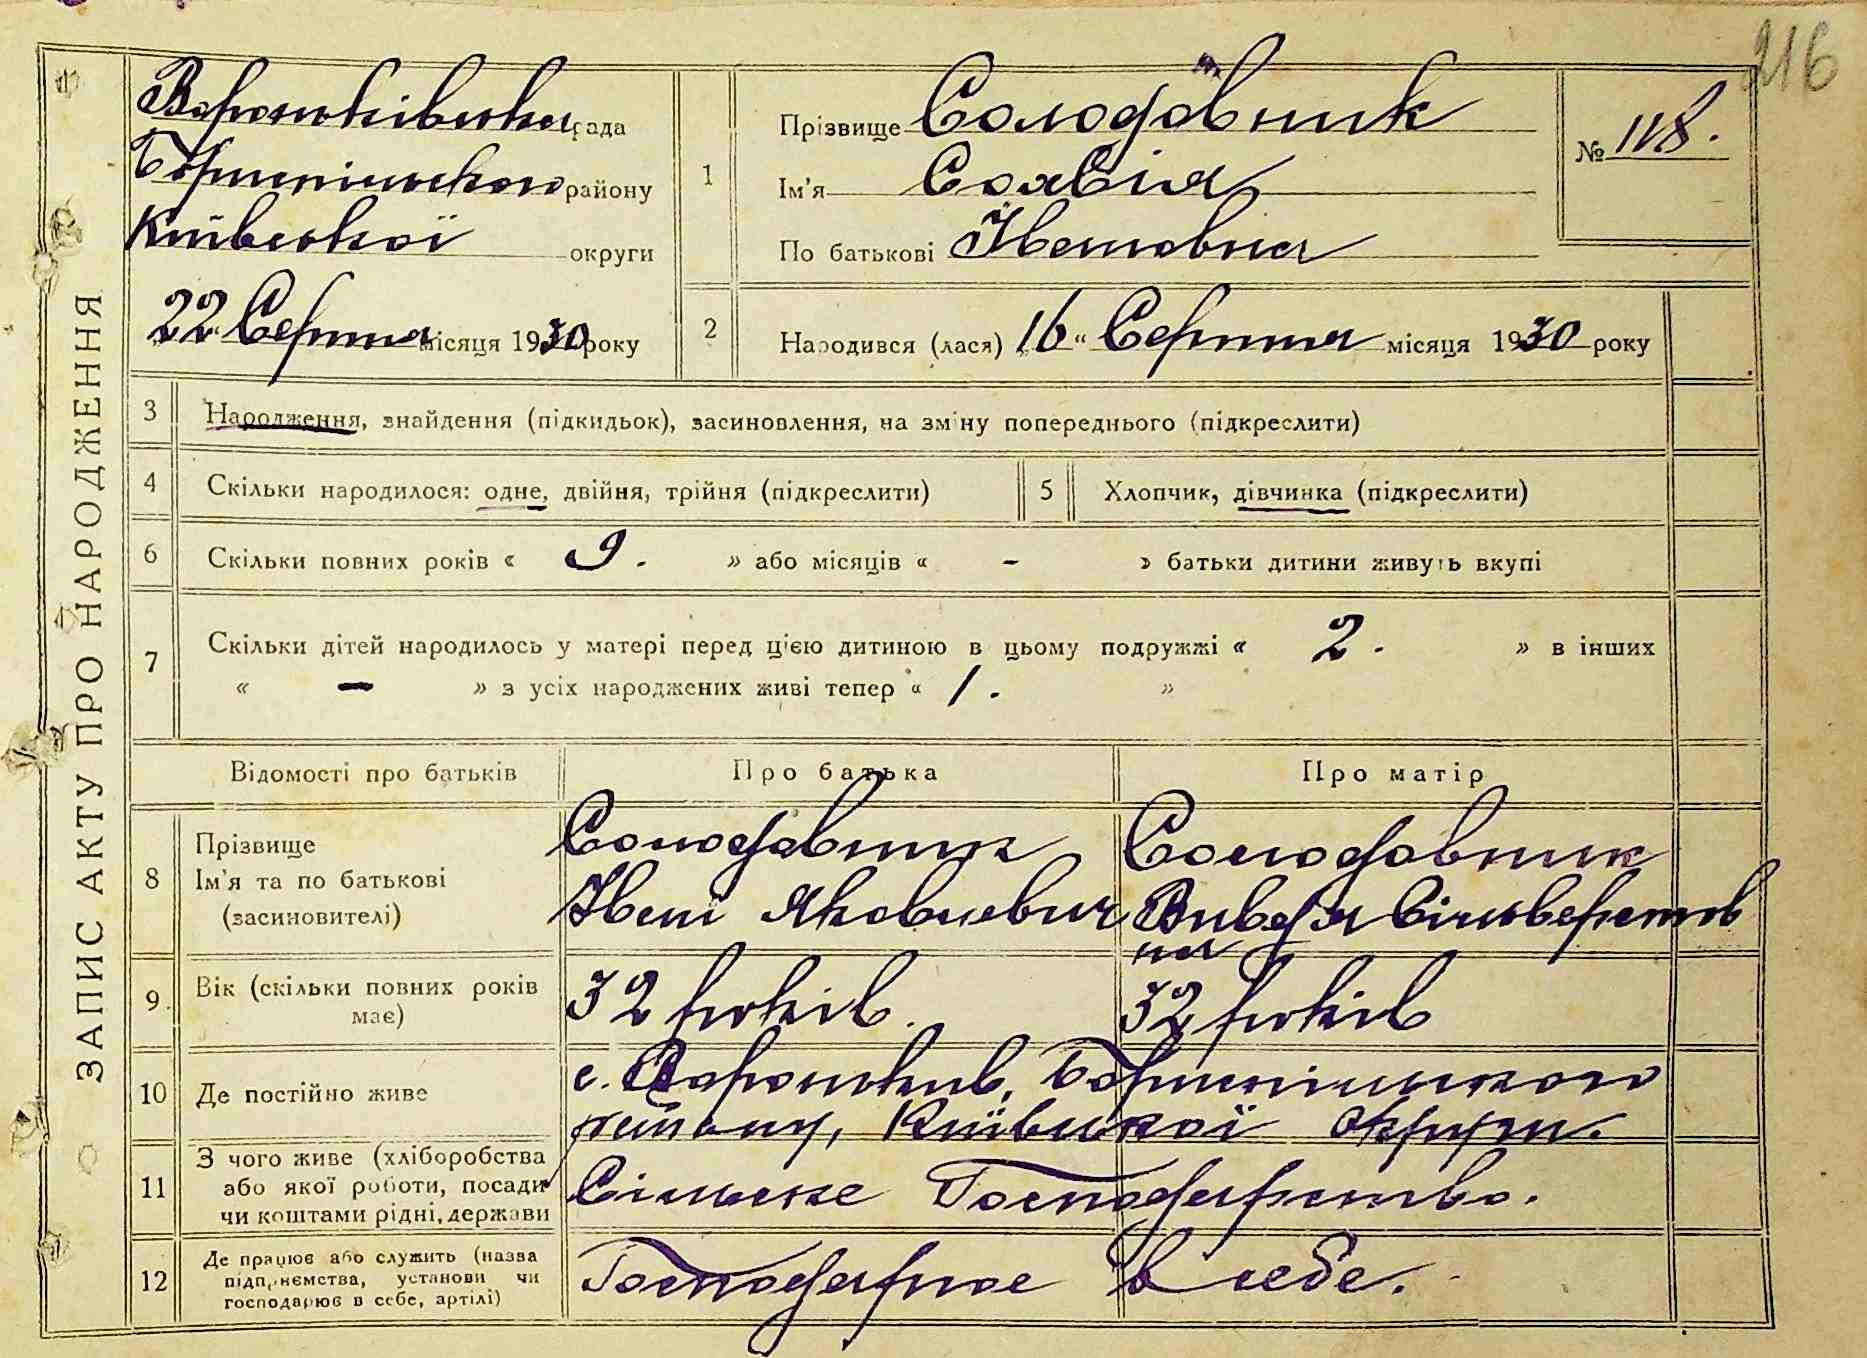 216
ЗАПИС АКТУ ПРО НАРОДЖЕННЯ
Вороньківська рада
Бориспільського району
Київської округи
22 Серпня місяця 1930 року
1
Прізвище Солодовник
Ім'я Софія
По батькові Ивановна
№ 118.
2
Народився (лася) „16“ Серпня місяця 1930 року
3 Народження, знайдення (підкидьок), засиновлення, на зміну попереднього (підкреслити)
4 Скільки народилося: одне, двійня, трійня (підкреслити)
5 Хлопчик, дівчинка (підкреслити)
6 Скільки повних років « 9. » або місяців « - » батьки дитини живуть вкупі
7 Скільки дітей народилось у матері перед цією дитиною в цьому подружжі « 2. » в інших
« — » з усіх народжених живі тепер « 1. »
Відомості про батьків Про батька Про матір
8 Прізвище
Ім'я та по батькові
(засиновителі)
Солодовник
Иван Яковлевич
Солодовник
Сильверстов
на
9. Вік (скільки повних років
має)
32 років.
32 років
10 Де постійно живе
с. Вороньків, Бориспільського
району, Київської округи.
11 З чого живе (хліборобства
або якої роботи, посади
чи коштами рідні, держави
Сільске Господарство.
12 Де працює або служить (назва
підприємства, установи чи
господарює в себе, артілі)
Господарює в себе.